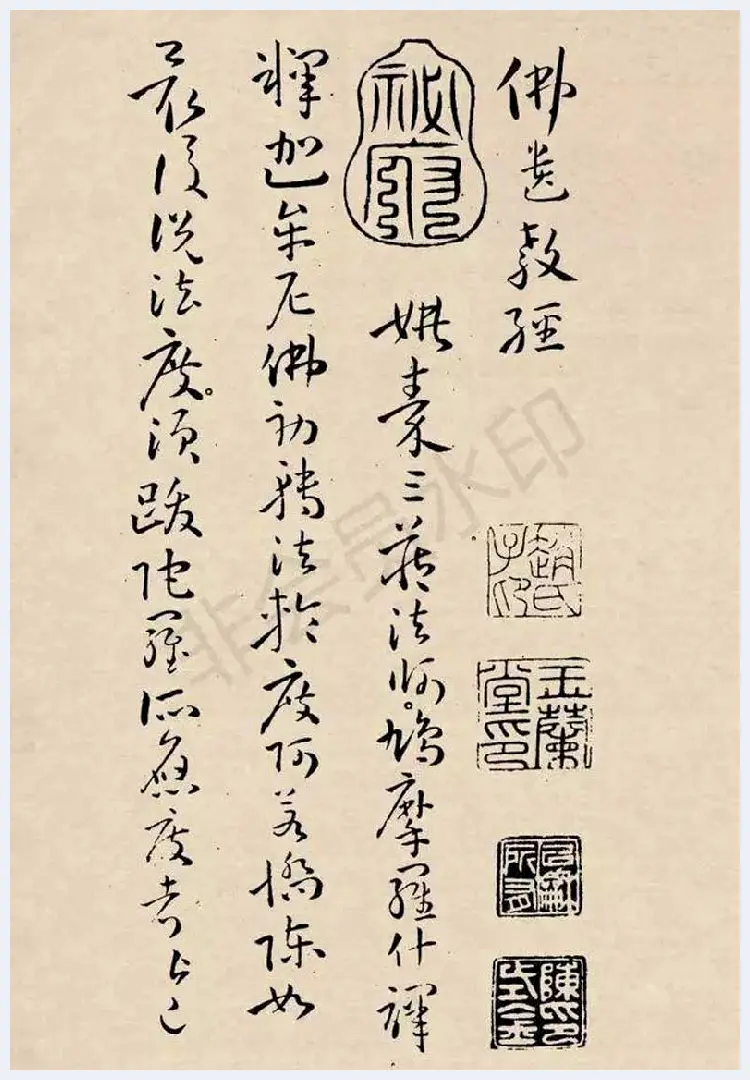 佛遺教經
趙氏子印
玉蘭堂印
祕府
姚秦三藏法師鳩摩羅什譯
釋迦牟尼佛初轉法輪度阿若憍陳如
最後說法度須跋陀羅所應度者皆已
非会员水印